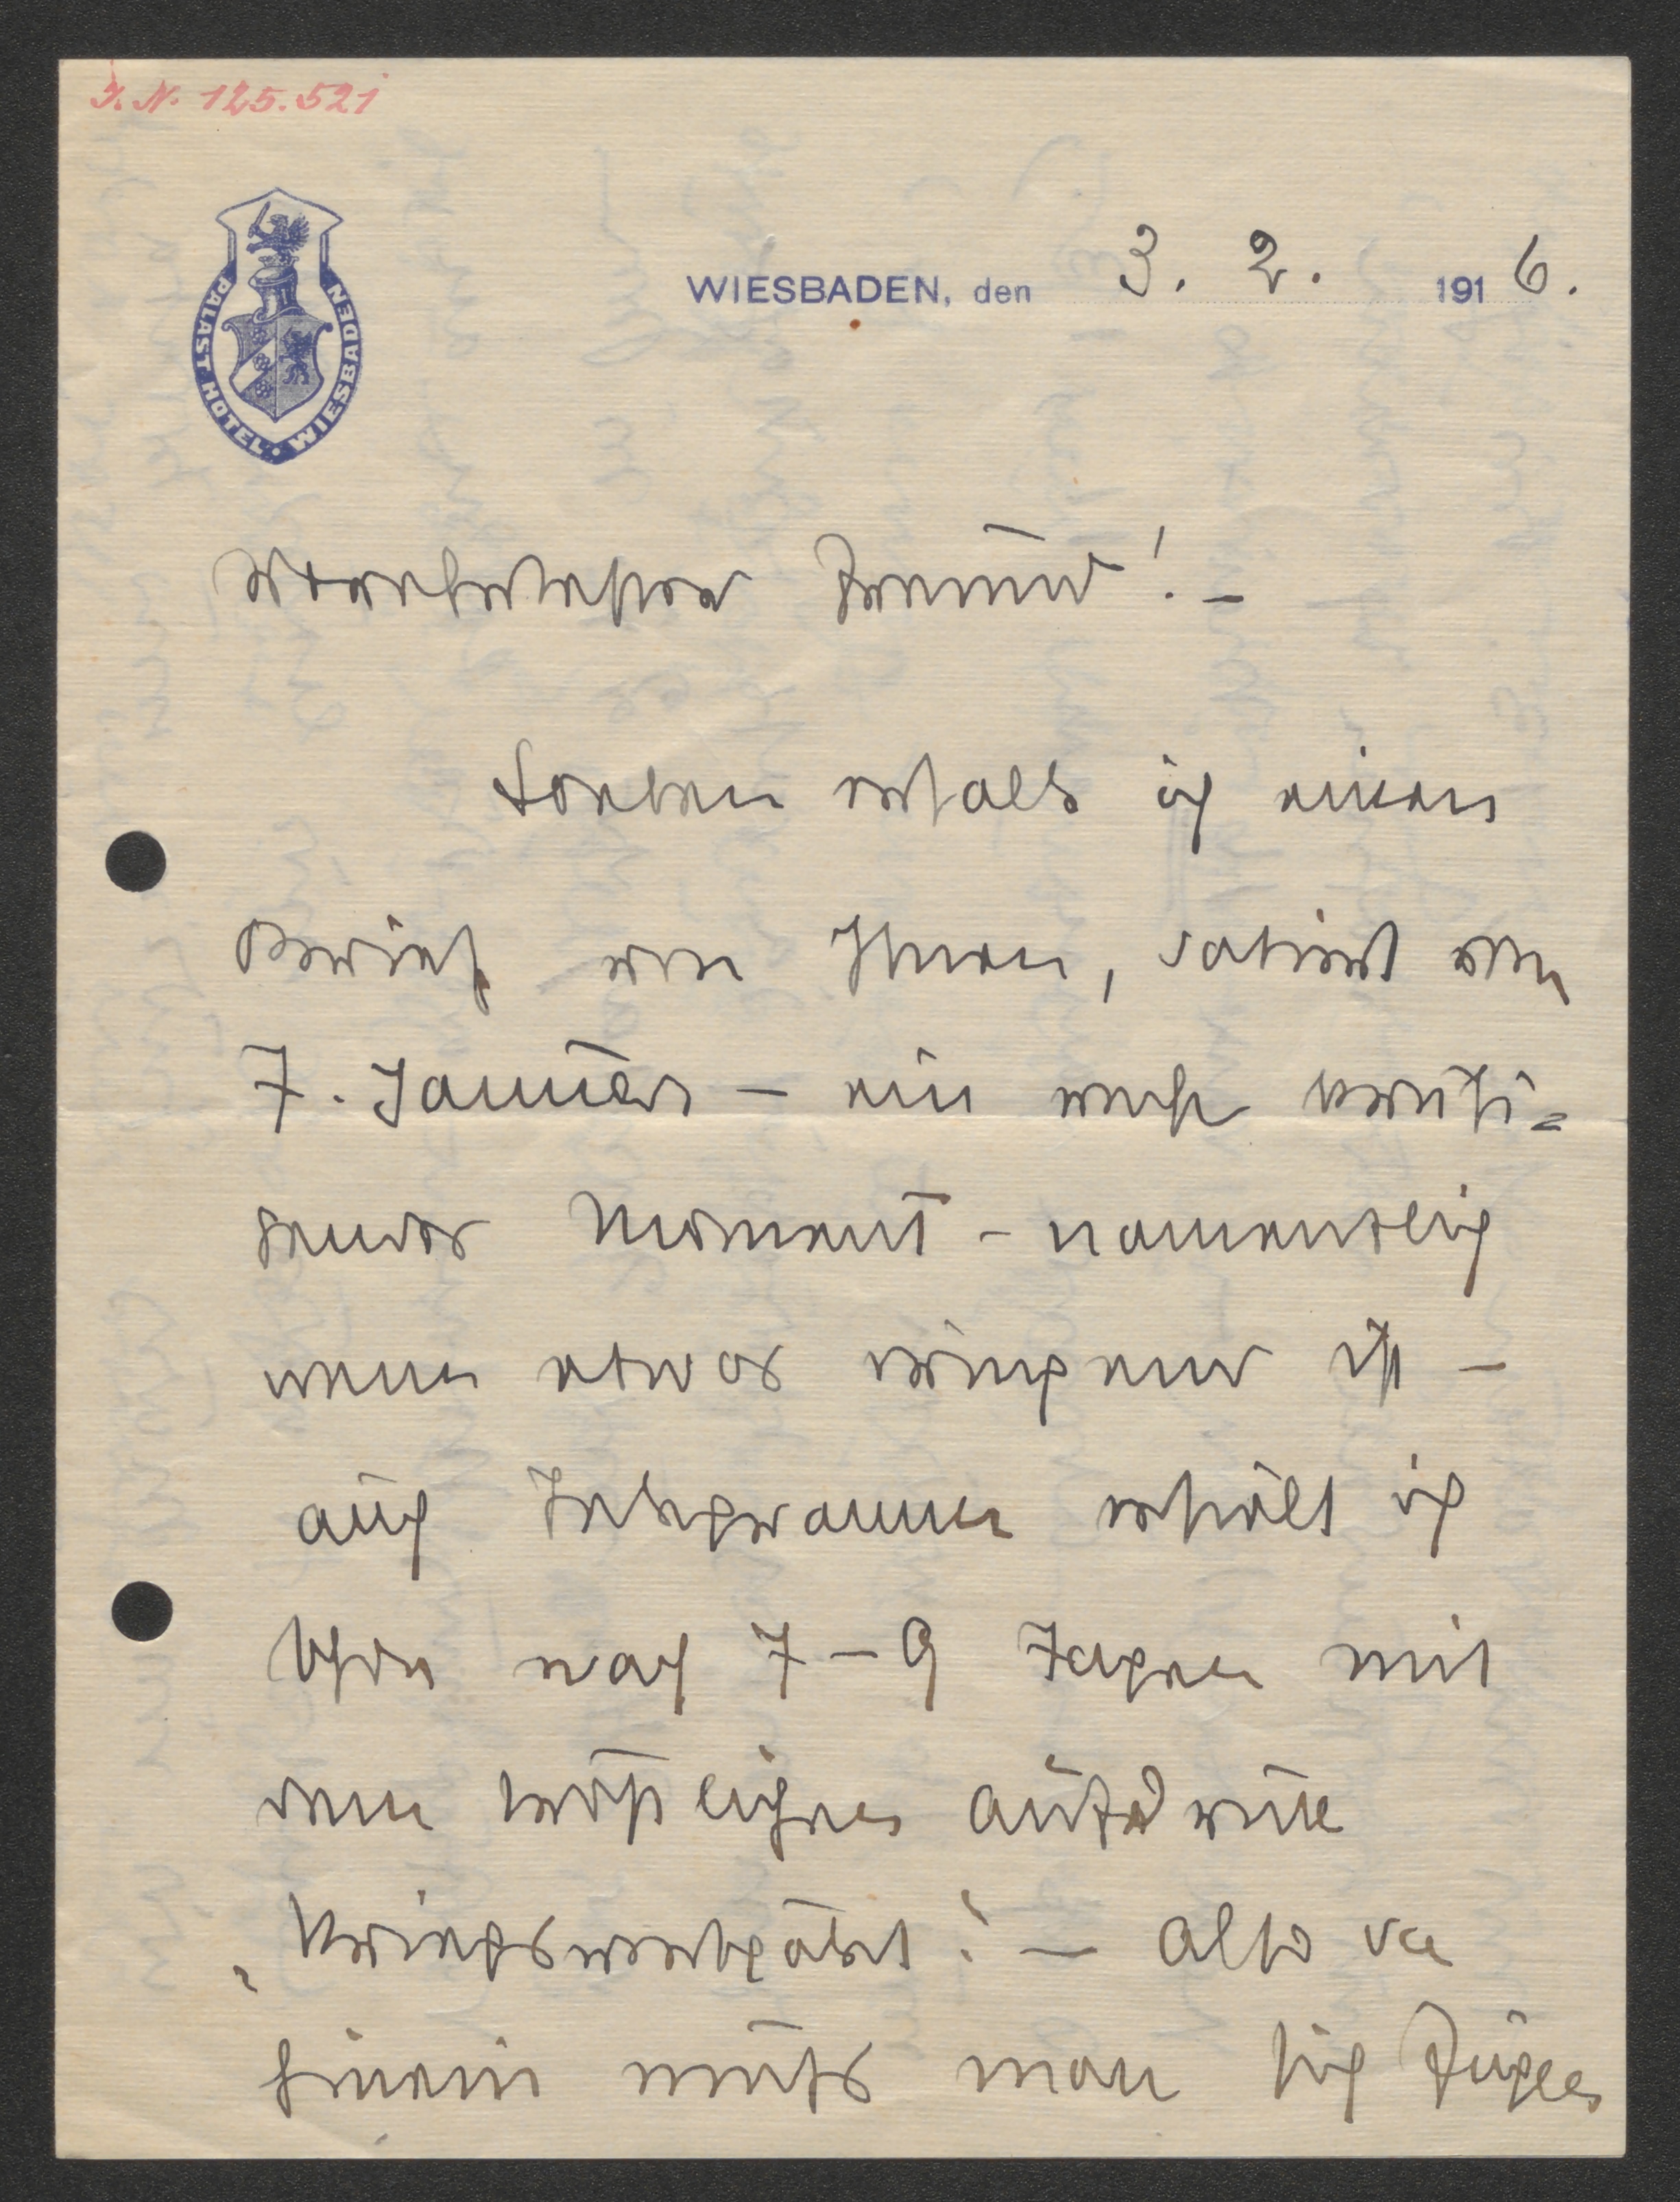 I. N. 125.521
PALAST HOTEL · WIESBADEN
WIESBADEN, den 3. 2. 1916.
Verehrtester Freund! –
Soeben erhalte ich einen
Brief von Ihnen, datiert vom
7. Jannuar – ein recht beruhi=
gender Moment – namentlich
wenn etwas dringend ist –
auch Telegramme erhält ich
schon nach 7–9 Tagen mit
dem tröstlichen Ausdruck
„Kriegsverspätet“ – Also da
hinein muss man sich fügen